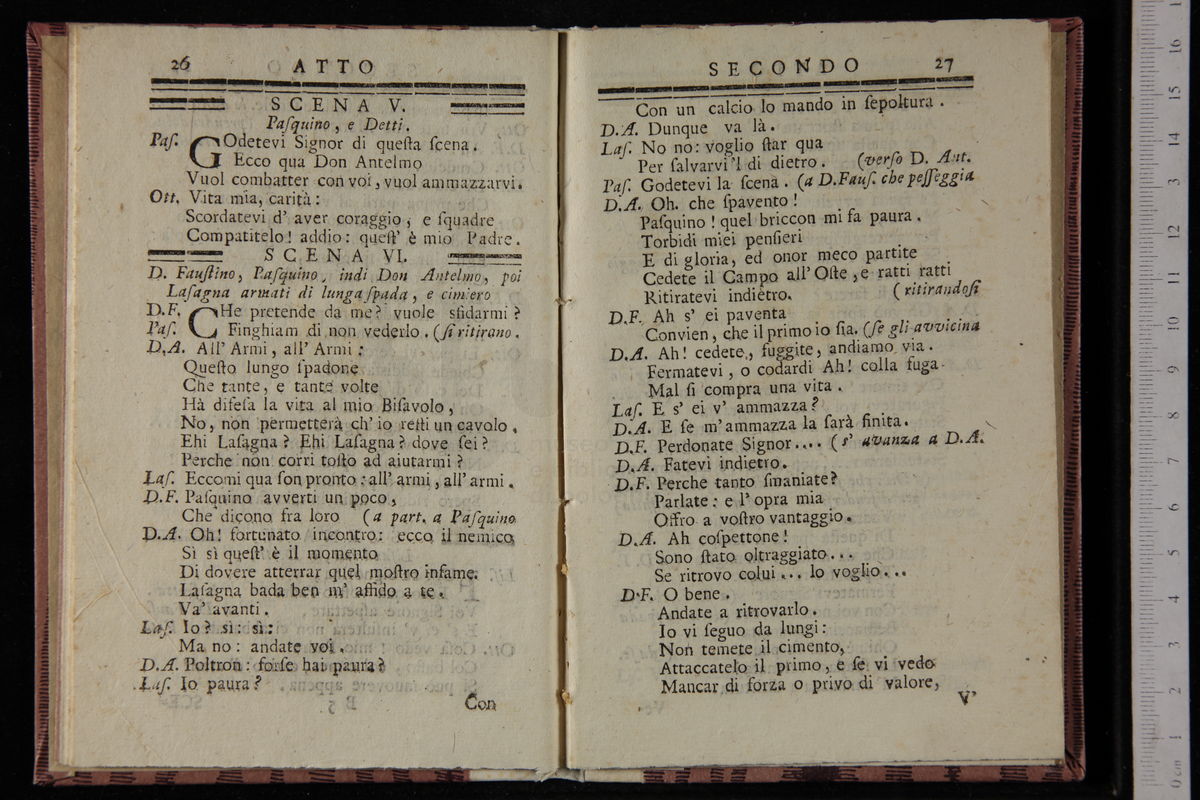 26 ATTO
SCENA V.
Paſquino, e Detti.
Paſ. GOdetevi Signor di queſta ſcena.
Ecco qua Don Antelmo
Vuol combatter con voi, vuol ammazzarvi.
Ott. Vita mia, carità:
Scordatevi d' aver coraggio, e ſquadre
Compatitelo! addio: queſt' è mio Padre.
SCENA VI.
D. Fauſtino, Paſquino, indi Don Antelmo, poi
Laſagna armati di lunga ſpada, e cimiero
D.F. CHe pretende da me? vuole sfidarmi?
Paſ. Finghiam di non vederlo. (ſi ritirano.
D.A. All' Armi, all' Armi:
Queſto lungo ſpadone
Che tante, e tante volte
Hà difeſa la vita al mio Biſavolo,
No, non permetterà ch' io reſti un cavolo.
Ehi Laſagna? Ehi Laſagna? dove ſei?
Perche non corri toſto ad aiutarmi?
Laſ. Eccomi qua ſon pronto: all' armi, all' armi.
D.F. Paſquino avverti un poco,
Che dicono fra loro (a part. a Paſquino
D.A. Oh! fortunato incontro: ecco il nemico
Sì sì queſt' è il momento
Di dovere atterrar quel moſtro infame.
Laſagna bada ben m' affido a te.
Va' avanti.
Laſ. Io? sì: sì:
Ma no: andate voi.
D.A. Poltron: forſe hai paura?
Laſ. Io paura?
Con
SECONDO 27
Con un calcio lo mando in ſepoltura.
D.A. Dunque va là.
Laſ. No no: voglio ſtar qua
Per ſalvarvi 'l di dietro. (verſo D. Ant.
Paſ. Godetevi la ſcena. (a D.Fauſ. che peſſeggia
D.A. Oh. che ſpavento!
Paſquino! quel briccon mi fa paura.
Torbidi miei penſieri
E di gloria, ed onor meco partite
Cedete il Campo all' Oſte, e ratti ratti
Ritiratevi indietro. (ritirandoſi
D.F. Ah s' ei paventa
Convien, che il primo io ſia. (ſe gli avvicina
D.A. Ah! cedete, fuggite, andiamo via.
Fermatevi, o codardi Ah! colla fuga
Mal ſi compra una vita.
Laſ. E s' ei v' ammazza?
D.A. E ſe m' ammazza la ſarà finita.
D.F. Perdonate Signor.... (s' avanza a D.A.
D.A. Fatevi indietro.
D.F. Perche tanto ſmaniate?
Parlate: e l' opra mia
Offro a voſtro vantaggio.
D.A. Ah coſpettone!
Sono ſtato oltraggiato...
Se ritrovo colui... lo voglio...
D.F. O bene.
Andate a ritrovarlo.
Io vi ſeguo da lungi:
Non temete il cimento,
Attaccatelo il primo, e ſe vi vedo
Mancar di forza o privo di valore,
V'